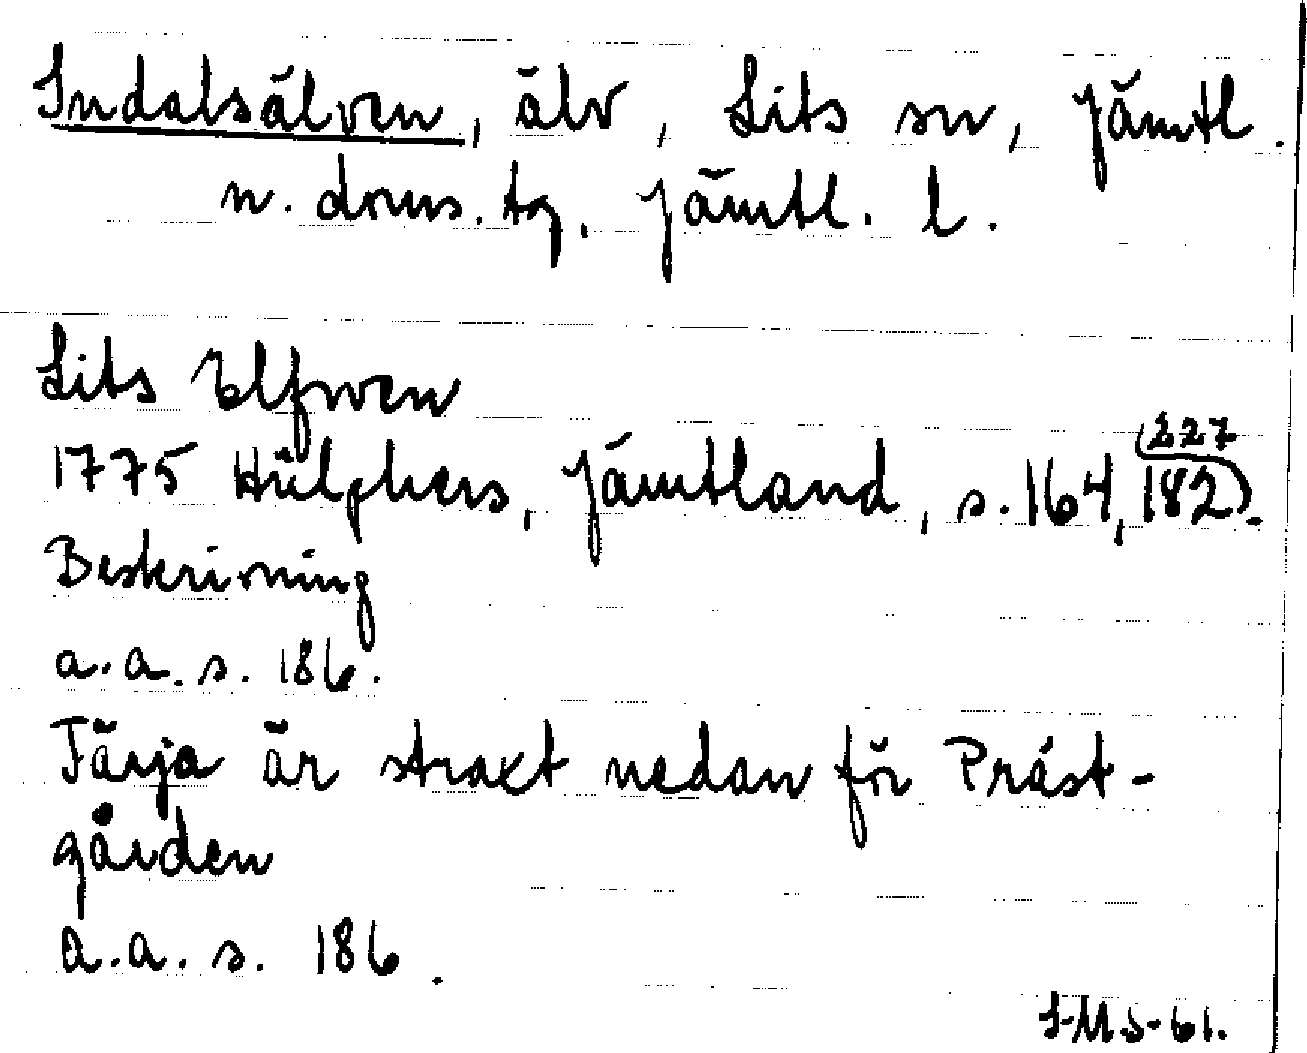 Indalsälven, älv, Lits sn, Jämtl.
n. doms. tg, Jämtl. l.
Lits Elfwen
1775 Hülphers, Jämtland, s. 164, 182. 227
Beskrivning
a.a. s. 186.
Färja är straxt nedan för Präst-
gården
a.a. s. 186.
I-M.S-61.